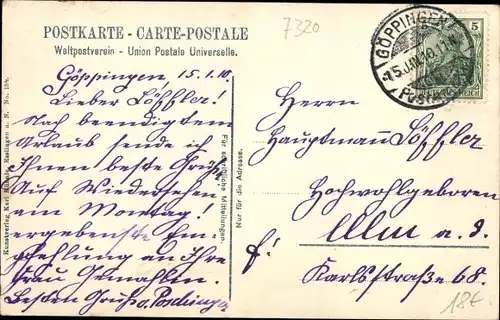 7320
POSTKARTE - CARTE-POSTALE
Weltpostverein - Union Postale Universelle.
GÖPPINGEN
15 JAN 10
5
Göppingen 15.1.10.
Lieber Löffler!
Nach beendigtem
Urlaub sende ich
Ihnen beste Grüße
Auf Wiedersehen
am Montag!
ergebenste Em-
pfehlung an Ihre
Frau Gemahlin.
Besten Gruß v. Poschinger
Für schriftliche Mitteilungen.
Nur für die Adresse.
Herrn
Hauptmann Löffler
Hochwohlgeboren
Ulm a. d.
f!
Karlstraße 68.
18€